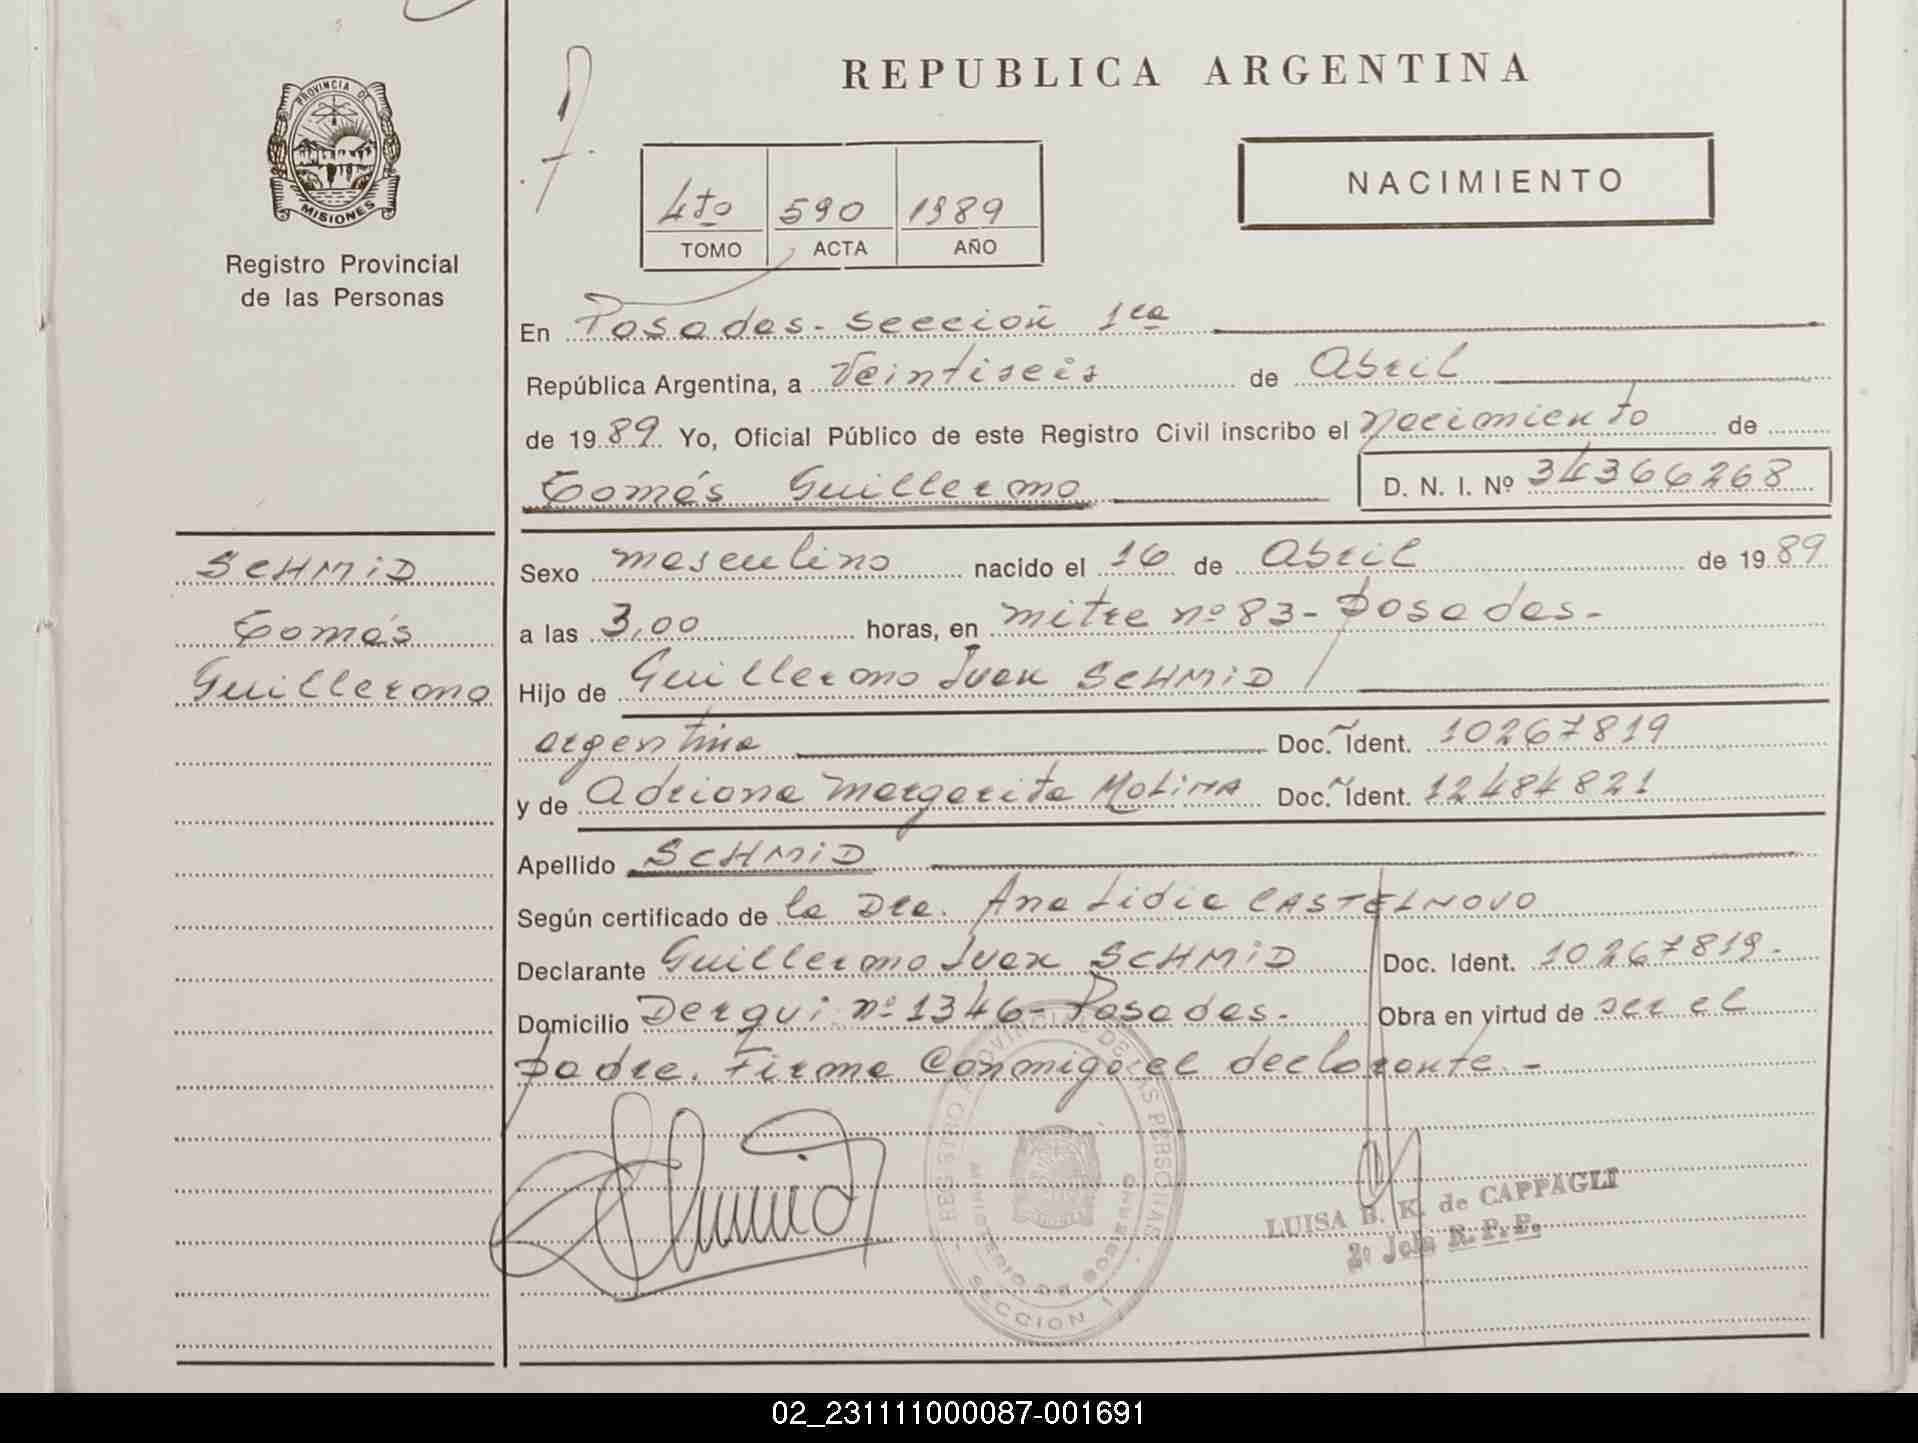 REPUBLICA ARGENTINA
PROVINCIA DE
MISIONES
Registro Provincial
de las Personas
4to 590 1989
TOMO ACTA AÑO
NACIMIENTO
En Posadas - Sección 1ra
República Argentina, a Veintiseis de Abril
de 1989 Yo, Oficial Público de este Registro Civil inscribo el Nacimiento de
Tomás Guillermo D. N. I. Nº 34366268
SCHMiD
Tomás
Guillermo
Sexo masculino nacido el 16 de Abril de 1989
a las 3,00 horas, en mitre nº 83 - Posadas -
Hijo de Guillermo Juan SCHMiD
argentina Doc. Ident. 10267819
y de Adriana Margarita MOLiNA Doc. Ident. 12484821
Apellido SCHMiD
Según certificado de la Dra. Ana Lidia CASTELNOVO
Declarante Guillermo Juan SCHMiD Doc. Ident. 10267819 -
Domicilio Derqui nº 1346 - Posadas - Obra en virtud de ser el
padre. Firma Conmigo el declarante. -
REGISTRO PROVINCIAL DE LAS PERSONAS
MINISTERIO DE GOBIERNO
SECCION 1
LUISA B. K. de CAPPAGLI
2º Jefe R. P. P.
02_231111000087-001691